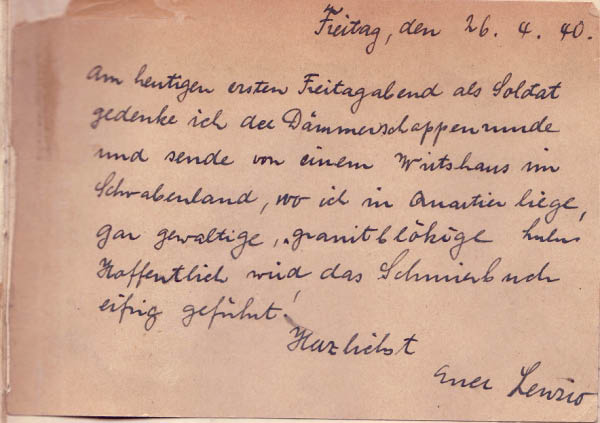 Freitag, den 26. 4. 40.
Am heutigen ersten Freitagabend als Soldat
gedenke ich der Dämmerschoppenrunde
und sende von einem Wirtshaus im
Schwabenland, wo ich in Quartier liege,
gar gewaltige, granitblökige
Hoffentlich wird das Schmierbuch
eifrig geführt!
Herzlichst
Euer